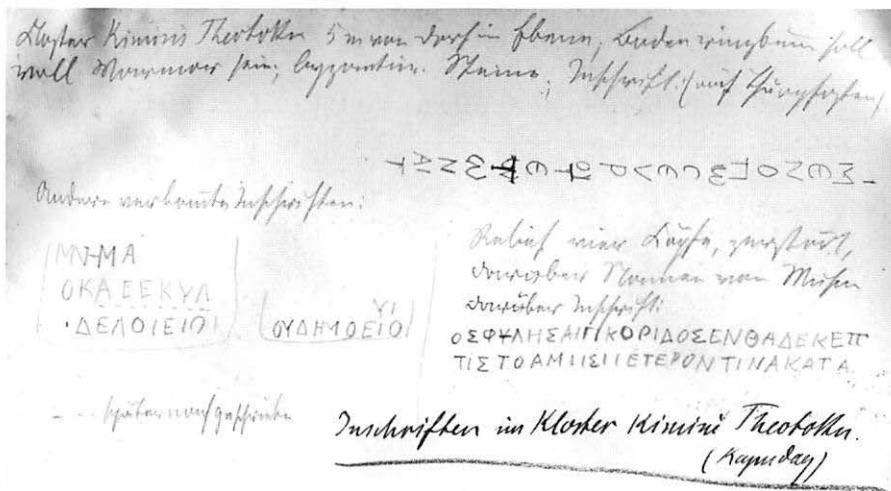 Kloster Kimini Theotoku 5 m von Dorf in Ebene, Boden ringsum soll
voll Marmor sein; byzantin. Steine; Inschrift: (auf Thürpfosten)
Andere verbaute Inschriften:
ΜΝΗΜΑ
ΟΚΑΣΕΚΥΛ
ΥΙ
ΟΥΔΗΜΟΕΙΟ
Relief vier Köpfe, zerstört,
darüber Namen von Musen
darüber Inschrift:
ΟΣΦΥΛΗΣΑΙΓΙΚΟΡΙΔΟΣΕΝΘΑΔΕΚΕΠ
ΤΙΣΤΟΑΜΙΙΣΙΙΕΤΕΡΟΝΤΙΝΑΚΑΤΑ
später nachgeschrieben
Inschriften im Kloster Kimini Theotoku.
(Kapudağ)